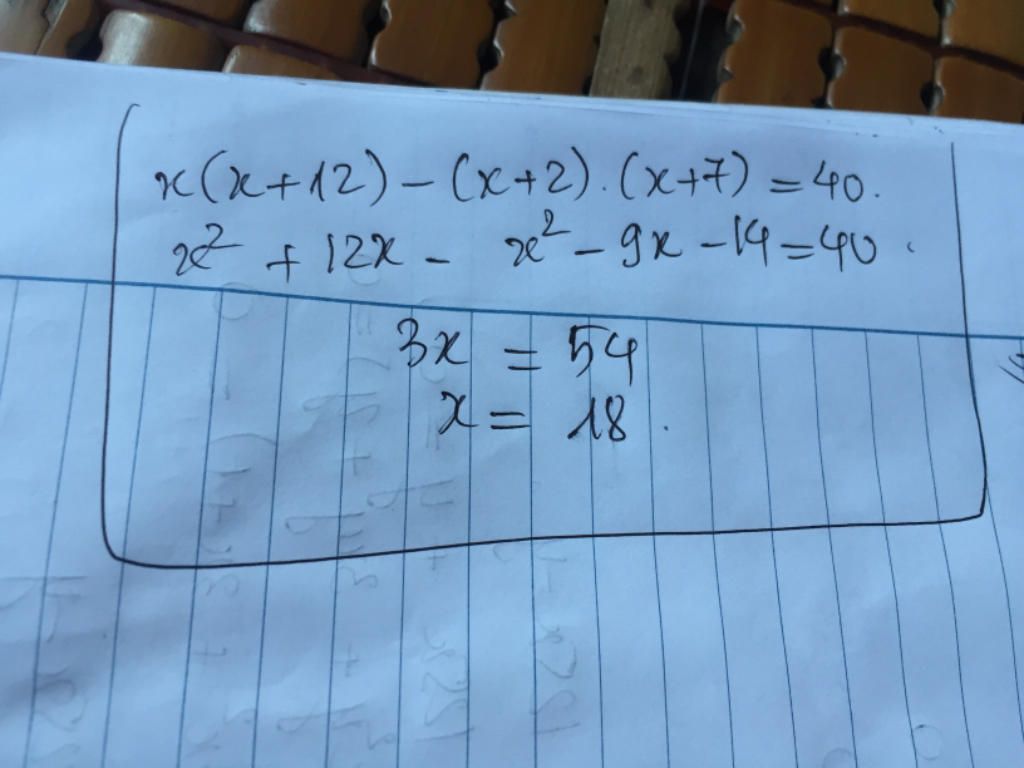 x(x+12) - (x+2).(x+7) = 40.
x² + 12x - x² - 9x - 14 = 40.
3x = 54
x = 18.